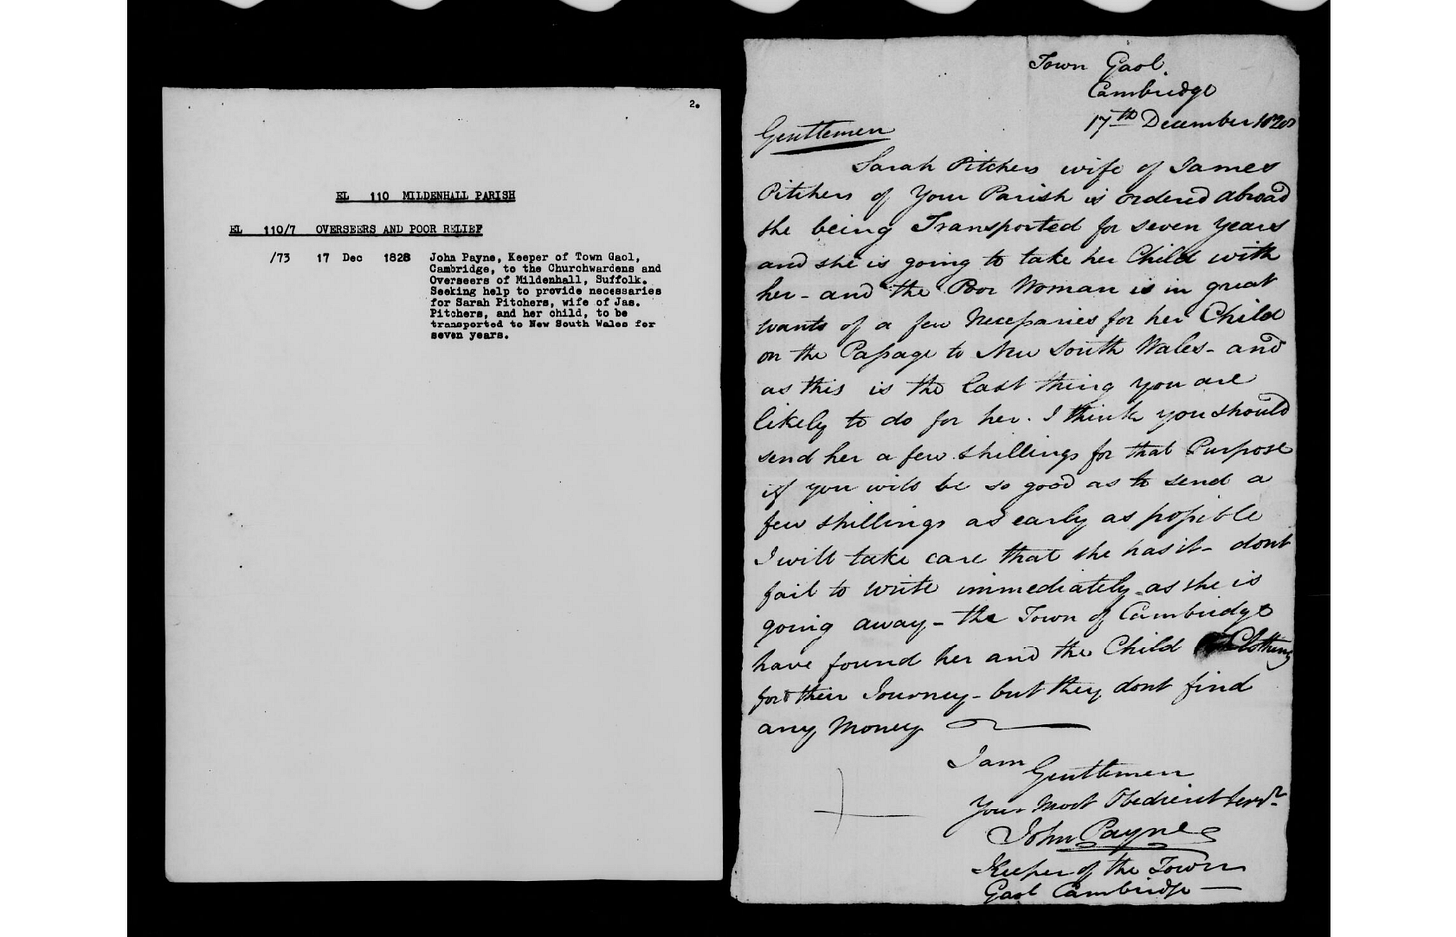 2.
EL 110 MILDENHALL PARISH
EL 110/7 OVERSEERS AND POOR RELIEF
/73 17 Dec 1828 John Payne, Keeper of Town Gaol,
Cambridge, to the Churchwardens and
Overseers of Mildenhall, Suffolk.
Seeking help to provide necessaries
for Sarah Pitchers, wife of Jas.
Pitchers, and her child, to be
transported to New South Wales for
seven years.
Town Gaol
Cambridge
17th December 1828
Gentlemen
Sarah Pitchers wife of James
Pitchers of Your Parish is ordered abroad
she being Transported for seven years
and she is going to take her Child with
her - and the Poor Woman is in great
wants of a few Necessaries for her Child
on the Passage to New South Wales - and
as this is the last thing you are
likely to do for her. I think you should
send her a few shillings for that Purpose
if you will be so good as to send a
few shillings as early as possible
I will take care that she has it - dont
fail to write immediately as she is
going away - the Town of Cambridge
have found her and the Child Clothing
for their Journey - but they dont find
any Money
I am
Gentlemen
Your Most Obedient Servt.
John Payne
Keeper of the Town
Gaol Cambridge